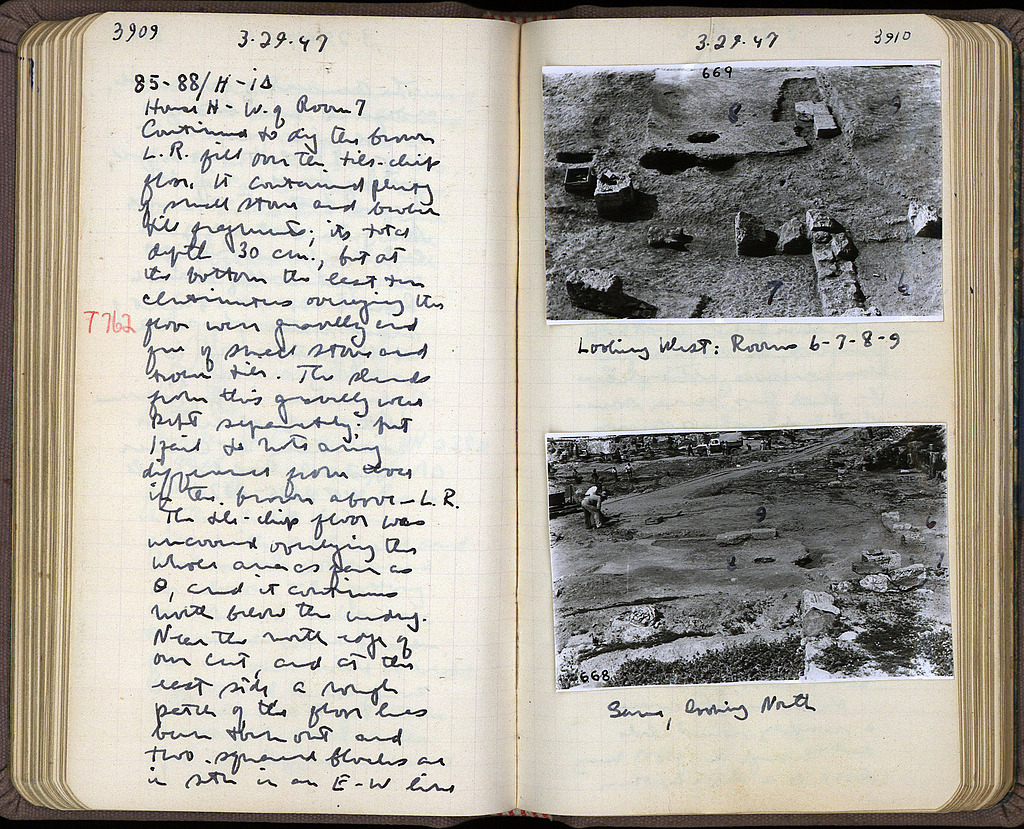 3909
3.29.47
85-88/H-ΙΔ
House H - W. of Room 7
Continued to dig the brown
L.R. fill over the tile-chip
floor. It contained plenty
of small stones and broken
tile fragments; its total
depth 30 cm., but at
its bottom the last ten
centimeters overlying the
T762
floor were gravelly and
free of small stones and
broken tiles. The sherds
from this gravelly were
kept separately: but
I fail to note any
differences from those
in the brown above - L.R.
The tile-chip floor was
uncovered overlying the
whole area as far as
Θ, and it continues
north below the undug.
Near the north edge of
our cut, and at the
east side a rough
patch of the floor has
been torn out and
two squared blocks are
in situ in an E-W line
3.29.47
3910
669
8
9
7
6
Looking West: Rooms 6-7-8-9
9
6
8
7
668
Same, looking North